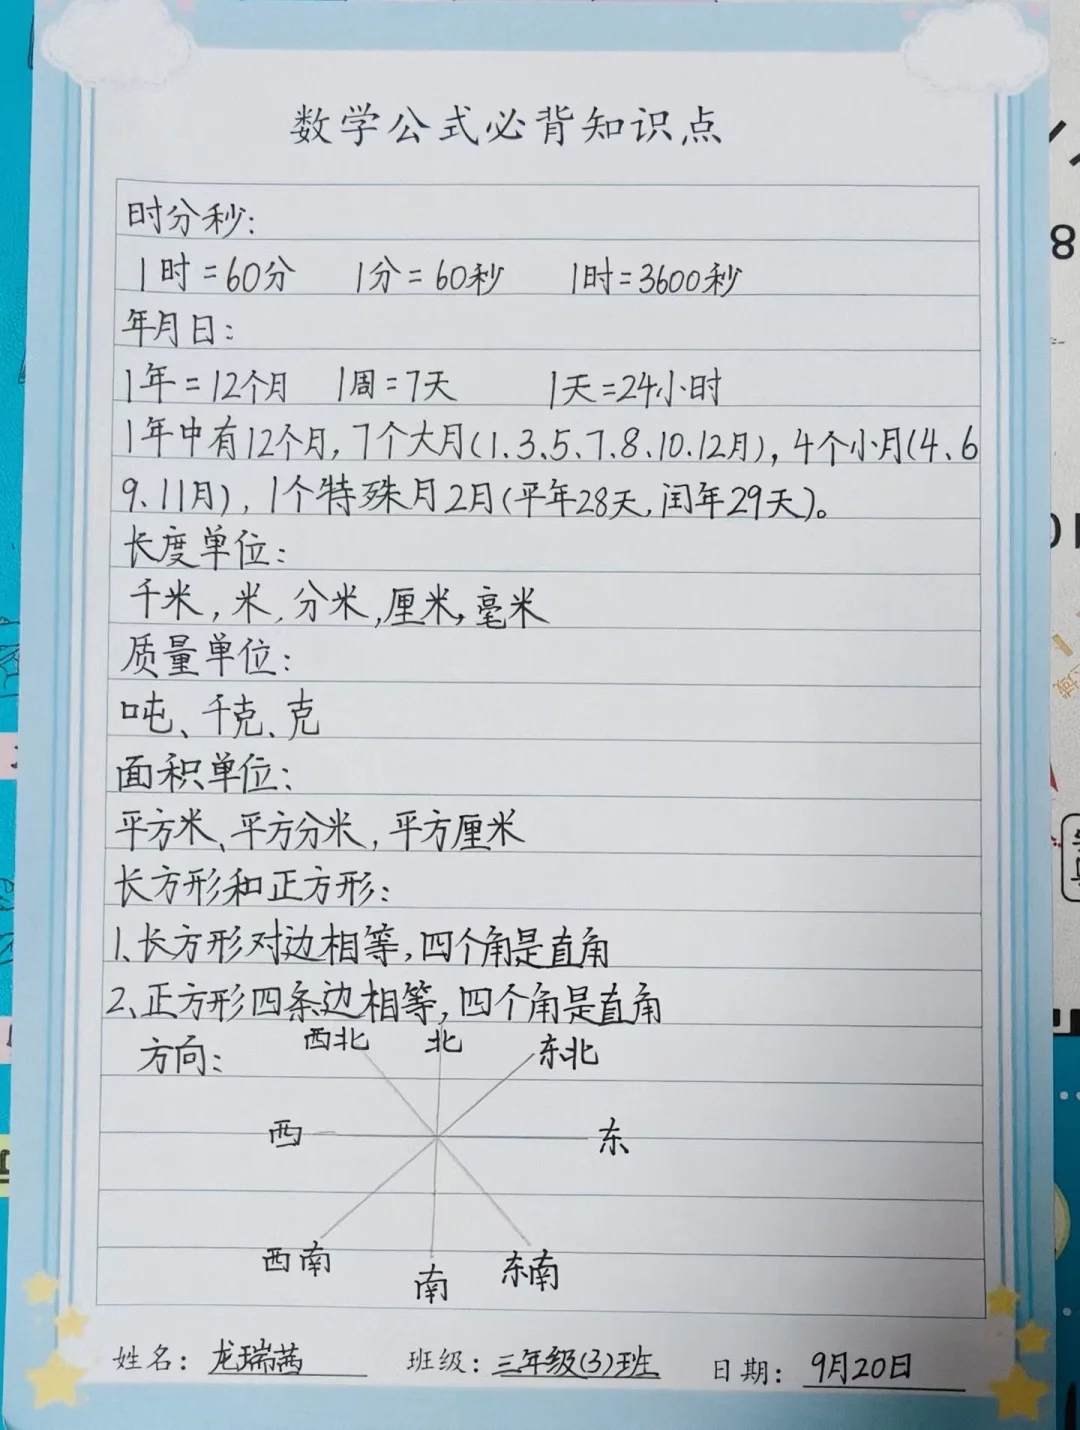 数学公式必背知识点
时分秒:
1时=60分 1分=60秒 1时=3600秒
年月日:
1年=12个月 1周=7天 1天=24小时
1年中有12个月,7个大月(1.3、5、7.8、10.12月),4个小月(4、6
9、11月),1个特殊月2月(平年28天,闰年29天)。
长度单位:
千米,米,分米,厘米,毫米
质量单位:
吨、千克、克
面积单位:
平方米、平方分米,平方厘米
长方形和正方形:
1、长方形对边相等,四个角是直角
2、正方形四条边相等,四个角是直角
方向: 西北 北 东北
西 东
西南 南 东南
姓名:龙瑞茜 班级:三年级(3)班 日期:9月20日
8